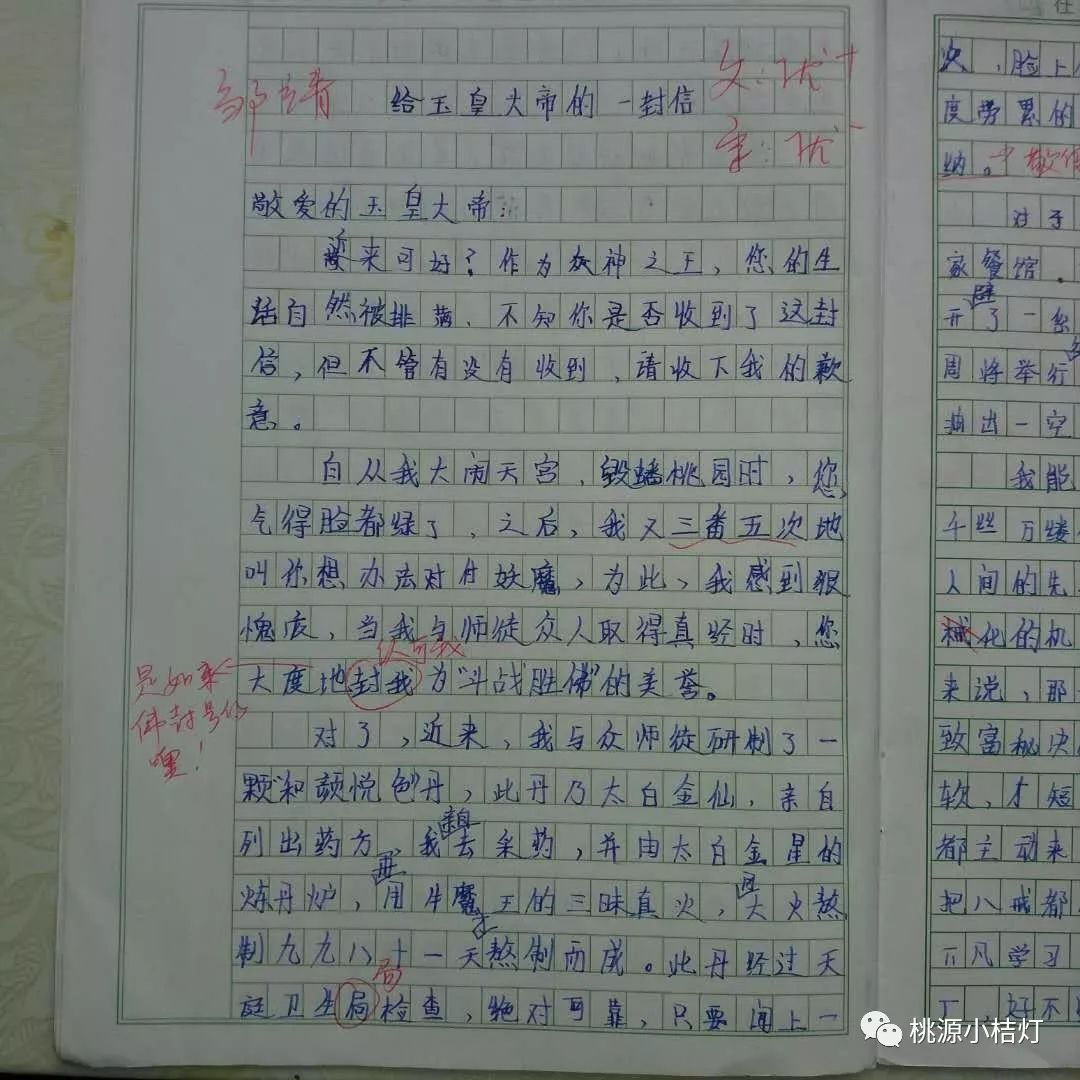 邹靖
文:优+
给玉皇大帝的一封信
字:优-
敬爱的玉皇大帝:
近来可好?作为众神之王,您的生
活自然被排满,不知你是否收到了这封
信,但不管有没有收到,请收下我的歉
意。
自从我大闹天宫,毁蟠桃园时,您
气得脸都绿了,之后,我又三番五次地
叫你想办法对付妖魔,为此,我感到狠
愧疚,当我与师徒众人取得真经时,您
认可我
大度地封我为“斗战胜佛”的美誉。
是如来
佛封号的
哩!
对了,近来,我与众师徒研制了一
颗“和颜悦色”丹,此丹乃太白金仙,亲自
列出药方,我亲自去采药,并由太白金星的
炼丹炉,再用牛魔王的三昧真火,再大火熬
制九九八十一天熬制而成。此丹经过天
局
庭卫生局检查,绝对可靠,只要闻上一
次,脸上
度劳累的
纳。
对于
家餐馆.
开了一
周将举行
抽出一空
我能
千丝万缕
人间的先
械化的机
来说,那
致富秘决
软,才短
都主动来
把八戒都
下凡学习
了,好不
桃源小桔灯